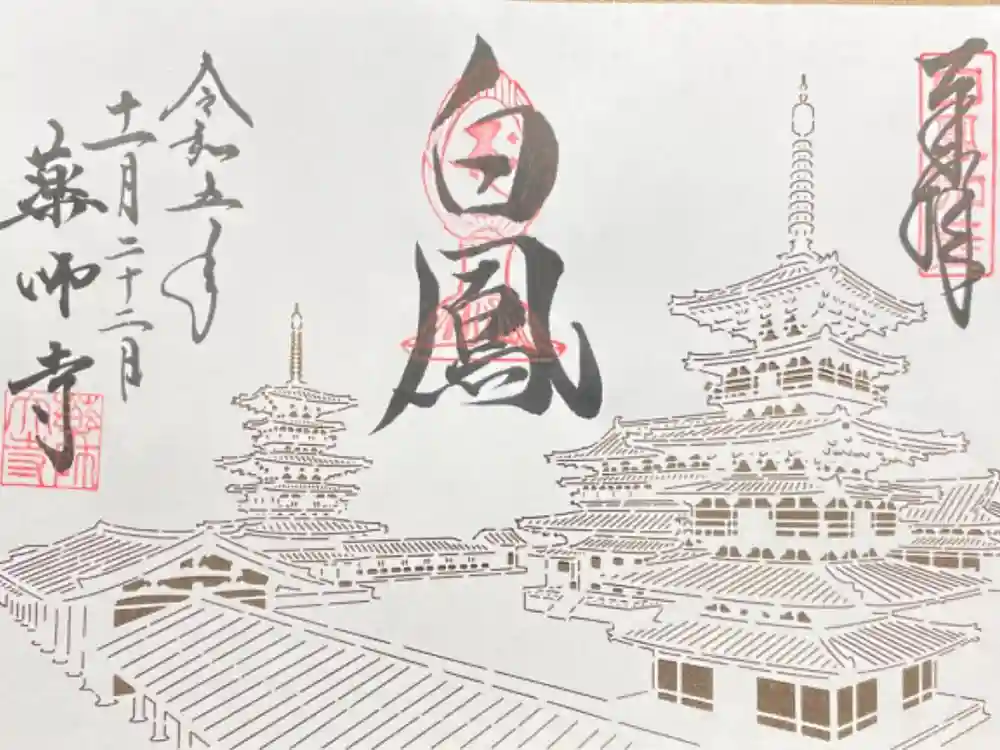 奉拝
白鳳
令和五年
十一月二十二日
薬師寺